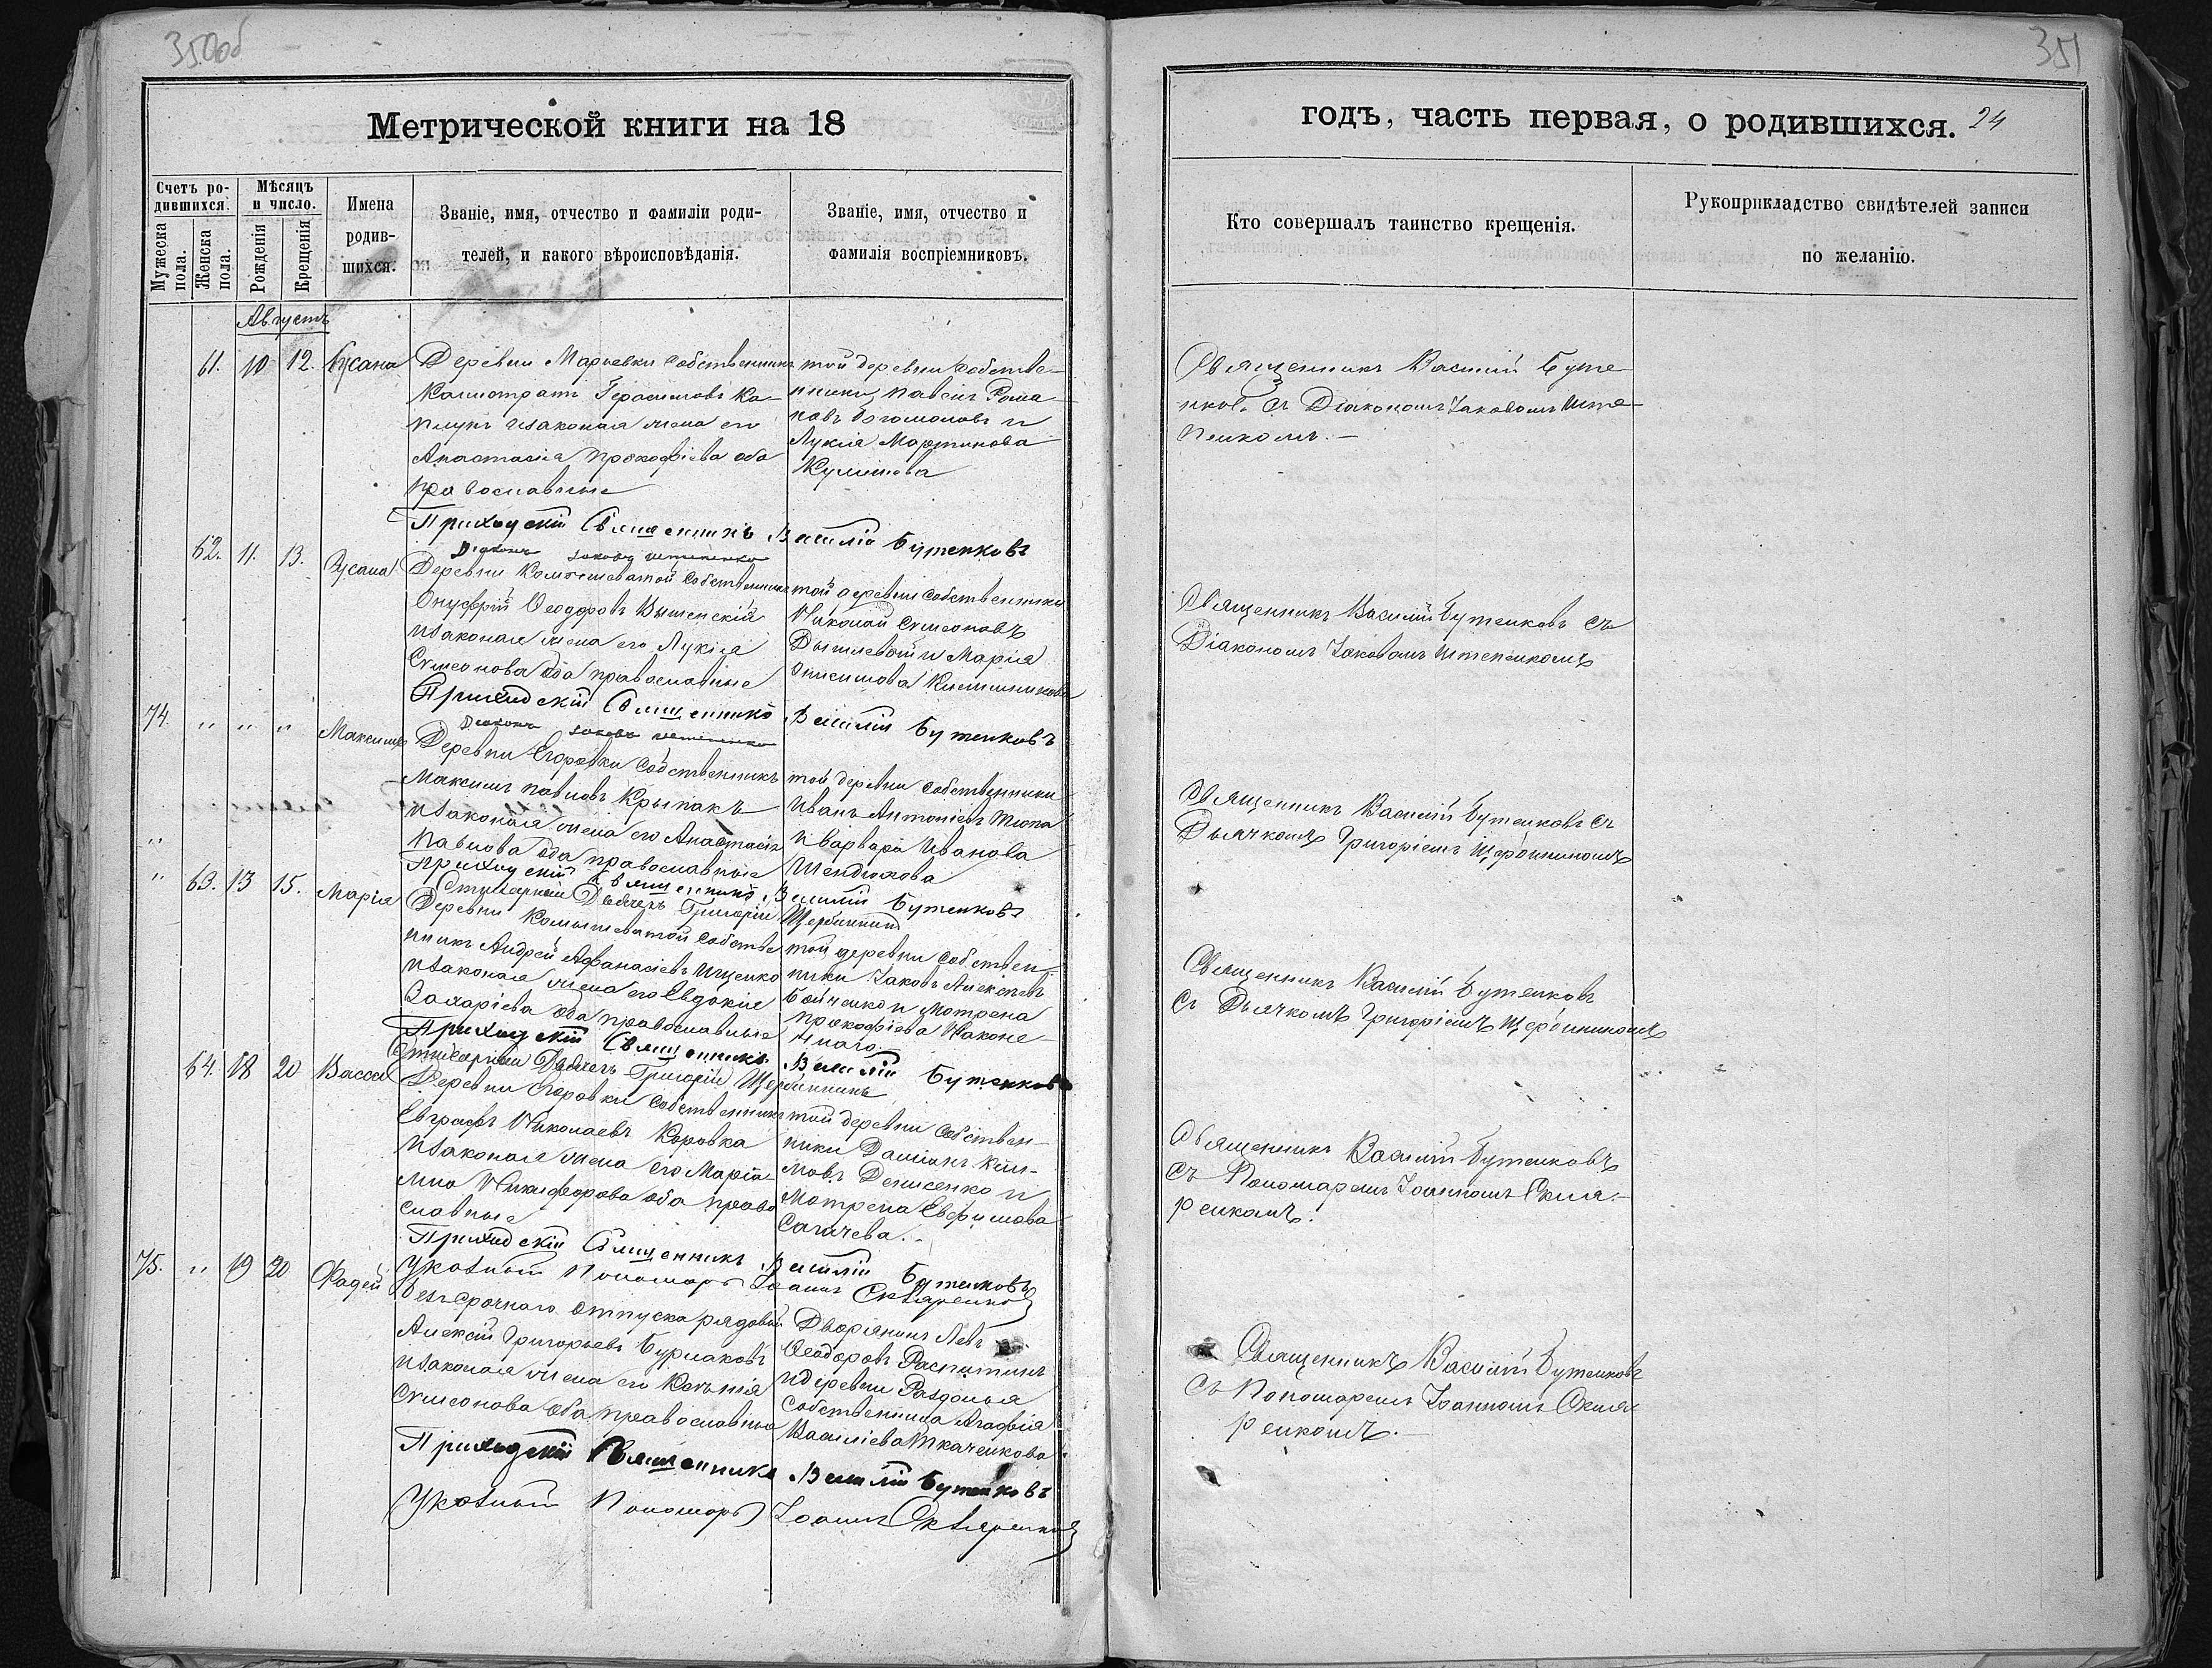 350об
Метрической книги на 18
Счетъ родившихся.
Мужеска пола.
Женска пола.
Мѣсяцъ и число.
Рожденія
Крещенія
Имена родившихся.
Званіе, имя, отчество и фамиліи родителей, и какого вѣроисповѣданія.
Званіе, имя, отчество и фамилія воспріемниковъ.
Августъ
61. 10 12.
Деревни Марьевки собственникъ
Герасимовъ Ка-
плунъ изаконая жена его
Анастасіа Прокофіева оба
православные
той деревни собстве-
нники Павелъ Рома-
новъ Богомоловъ и
Лукіа Мартинова
Приходскій Священникъ Василій Бутенковъ
Діаконъ Іаковъ Штепенко
62. 11. 13.
Деревни собственникъ
Онуфрій Ѳеодоровъ
изаконая жена его Лукіа
Сумеонова оба православные
той деревни собственники
Николай Сумеоновъ
и Марія
Онисимова
Приходскій Священникъ Василій Бутенковъ
Діаконъ Іаковъ Штепенко
74. " " " Максимъ
Деревни Егоровки собственникъ
Максимъ Павловъ Крыпакъ
изаконая жена его Анастасія
Павлова оба православные
той деревни собственники
Иванъ Антоніевъ
и Варвара Иванова
Приходскій Священникъ Василій Бутенковъ
Стихарный Дьячекъ Григорій Щербининъ
" 63. 13 15. Марія
Деревни Комышеватой собстве
нникъ Андрей Афанасіевъ Ищенко
изаконая жена его Евдокія
Захаріева оба православные
той деревни собствен-
ники Іаковъ Алексѣевъ
Бойченко и Мотрена
Прокофіева Наконе-
чнаго.
Приходскій Священникъ Василій Бутенковъ
Стихарный Дьячекъ Григорій Щербининъ
64. 18 20 Васса
Деревни Егоровки собственникъ
Евграфъ Николаевъ Коровка
изаконая жена его Маріа-
мна Никифорова оба право
славные
той деревни собствен-
ники Даміанъ Кли-
мовъ Денисенко и
Мотрена Евфимова
Сагачева.
Приходскій Священникъ Василій Бутенковъ
Указный Пономарь Іоаннъ Скляренко
75. " 19 20 Фадей
Безсрочнаго отпуска рядовый
Алексѣй Григорьевъ Бурлаковъ
изаконая жена его Ксенія
Сумеонова оба православные
Дворянинъ Левъ
Ѳеодоровъ Распитинъ
и деревни Раздолья
собственница Агафія
Василіева Ткаченкова
Приходскій Священникъ Василій Бутенковъ
Указный Пономарь Іоаннъ Скляренко
351
годъ, часть первая, о родившихся. 24
Кто совершалъ таинство крещенія.
Рукоприкладство свидѣтелей записи по желанію.
Священникъ Василій Буте-
нков. Съ Діакономъ Іаковомъ Ште-
пенкомъ.
Священникъ Василій Бутенковъ съ
Діакономъ Іаковомъ Штепенкомъ
Священникъ Василій Бутенковъ съ
Дьячкомъ Григоріемъ Щербининомъ
Священникъ Василій Бутенковъ
съ Дьячкомъ Григоріемъ Щербининомъ
Священникъ Василій Бутенковъ
съ Пономаремъ Іоанномъ Скля-
ренкомъ.
Священникъ Василій Бутенковъ
съ Пономаремъ Іоанномъ Скля
ренкомъ.